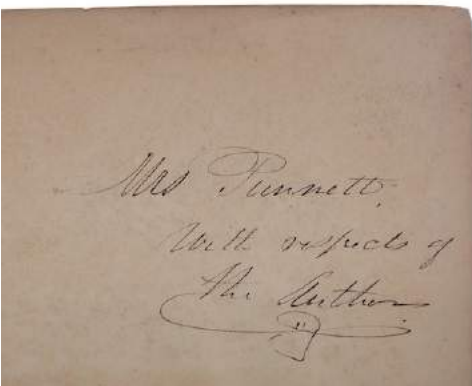 Mrs Punnett.
With respects of
The Author